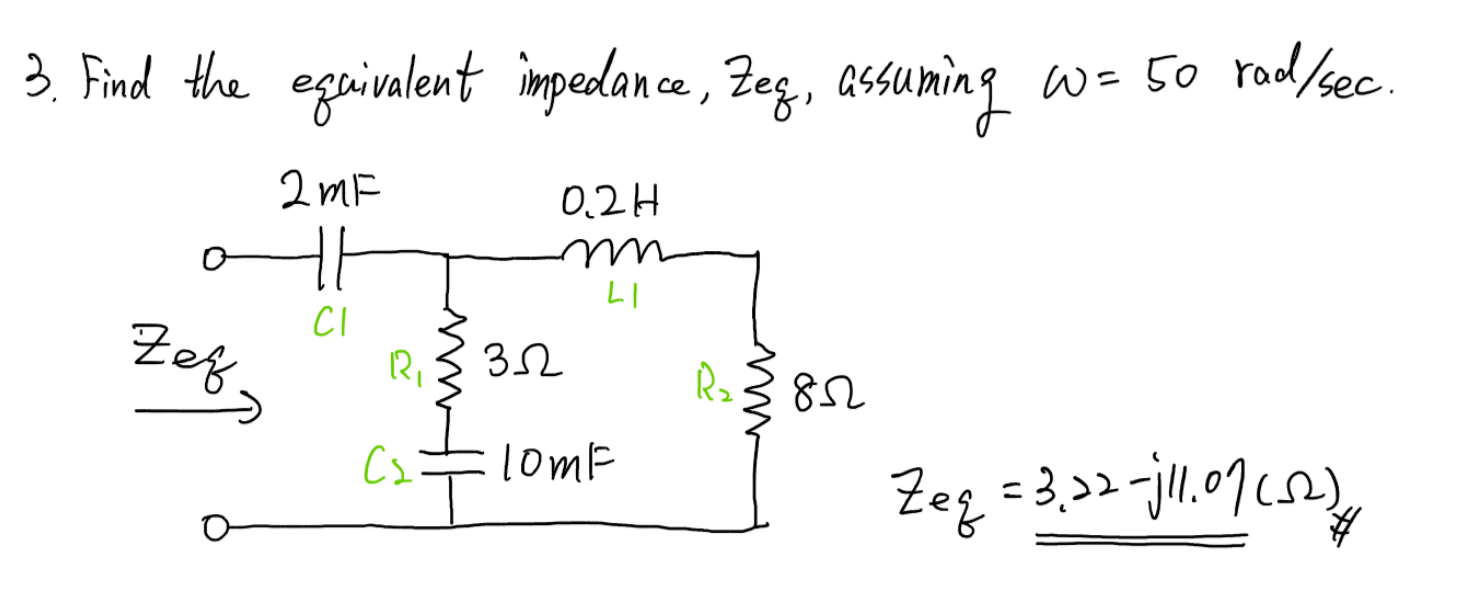 3. Find the equivalent impedance, Zeq, assuming ω = 50 rad/sec.
2mF
0.2H
C1
L1
Zeq
R₁
3Ω
R₂
8Ω
C2
10mF
Zeq = 3.22 - j11.07 (Ω)#